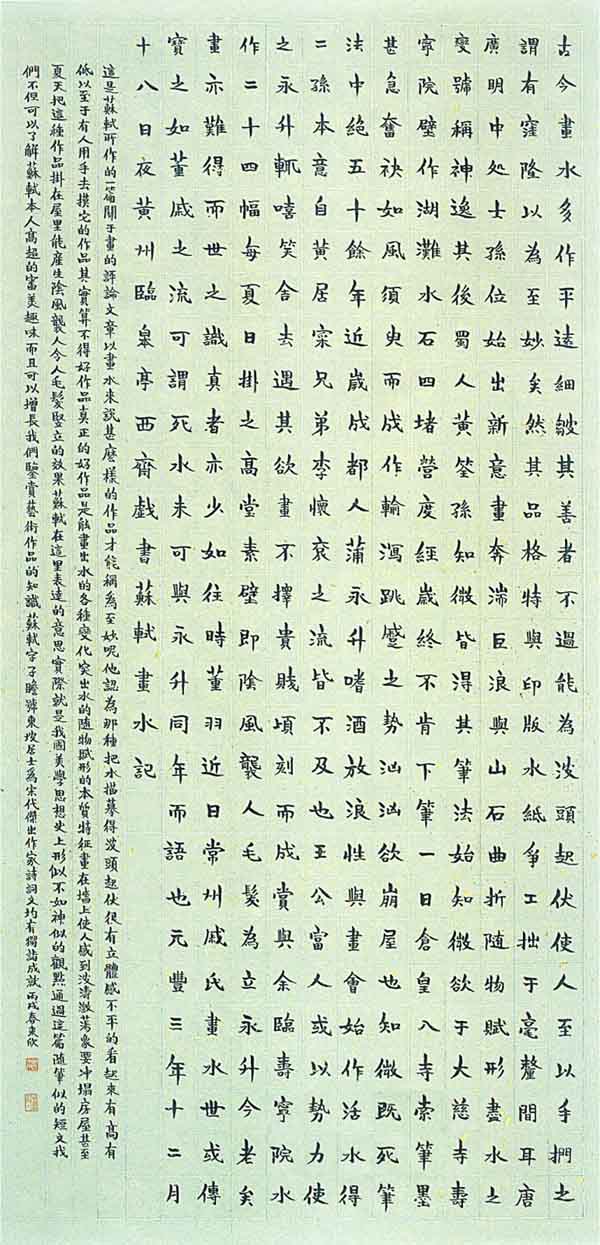 古今畫水多作平遠細皴其善者不過能為波頭起伏使人至以手捫之
謂有窪隆以為至妙矣然其品格特與印版水紙爭工拙于毫釐間耳唐
廣明中处士孫位始出新意畫奔湍巨浪與山石曲折隨物賦形盡水之
變號稱神逸其後蜀人黃筌孫知微皆得其筆法始知微欲于大慈寺壽
寧院壁作湖灘水石四堵營度經歲終不肯下筆一日倉皇入寺索筆墨
甚急奮袂如風須臾而成作輸瀉跳蹙之勢汹汹欲崩屋也知微既死筆
法中絕五十餘年近歲成都人蒲永升嗜酒放浪性與畫會始作活水得
二孫本意自黃居寀兄弟李懷袞之流皆不及也王公富人或以勢力使
之永升輒嘻笑舍去遇其欲畫不擇貴賤頃刻而成賞與余臨壽寧院水
作二十四幅每夏日掛之高堂素壁即陰風襲人毛髮為立永升今老矣
畫亦難得而世之識真者亦少如往時董羽近日常州戚氏畫水世或傳
寶之如董戚之流可謂死水未可與永升同年而語也元豐三年十二月
十八日夜黃州臨皋亭西齋戲書蘇軾畫水記
這是蘇軾所作的一篇關于畫的評論文章以畫水來說甚麼樣的作品才能稱為至妙呢他認為那種把水描摹得波頭起伏很有立體感不平的看起來有高有
低以至于有人用手去摸它的作品其實算不得好作品真正的好作品是能畫出水的各種變化突出水的隨物賦形的本質特征畫在墻上使人感到波濤激蕩象要冲塌房屋甚至
夏天把這種作品掛在屋里能產生陰風襲人令人毛髮竪立的效果蘇軾在這里表達的意思實際就是我國美學思想史上形似不如神似的觀點通過這篇隨筆似的短文我
們不但可以了解蘇軾本人高超的審美趣味而且可以增長我們鑒賞藝術作品的知識蘇軾字子瞻號東坡居士為宋代傑出作家詩詞文均有獨詣成就丙戌春爽欣